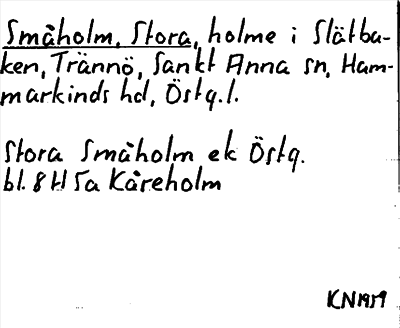 Småholm, Stora, holme i Slätba-
ken, Trännö, Sankt Anna sn, Ham-
markinds hd, Östg.l.
Stora Småholm ek Östg.
bl. 8 H 5a Kåreholm
KN 1959